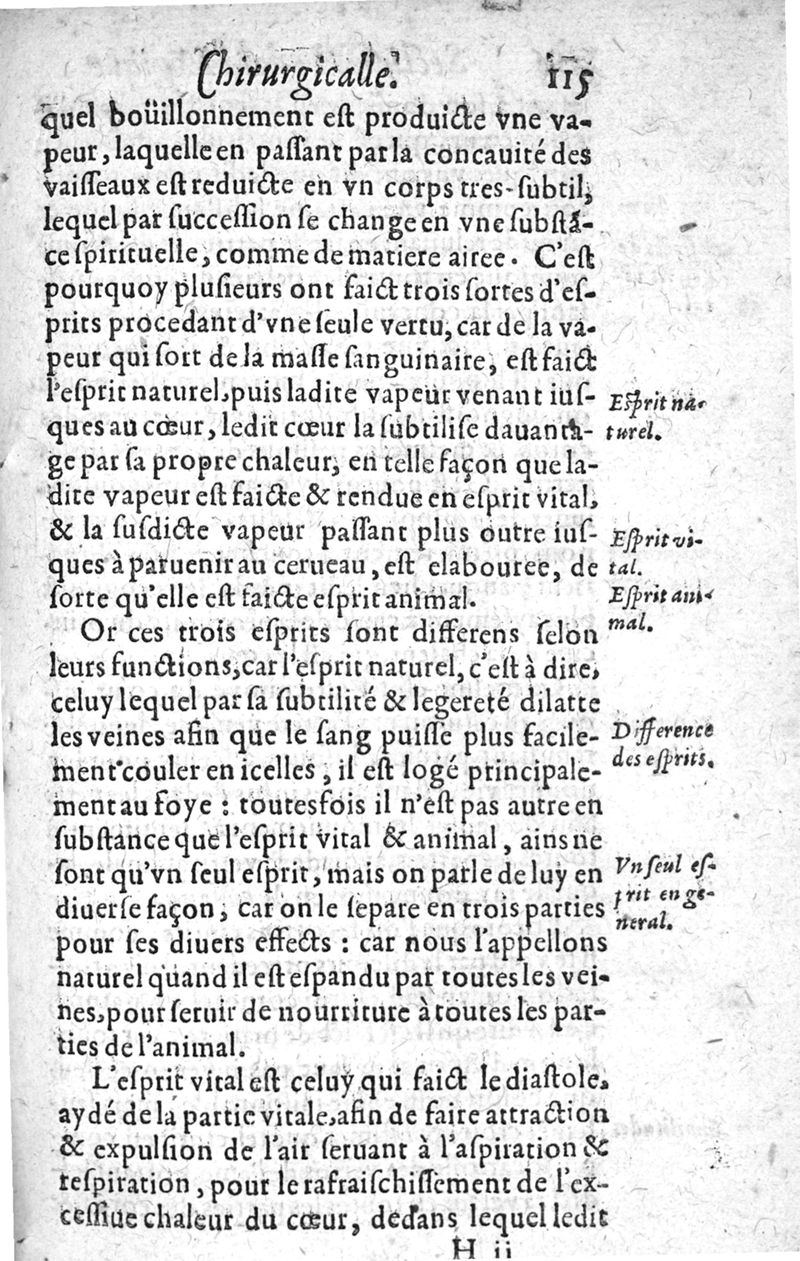 Chirurgicalle. 115
quel boüillonnement est produicte vne va-
peur, laquelle en passant par la concauité des
vaisseaux est reduicte en vn corps tres-subtil,
lequel par succession se change en vne substā-
ce spirituelle, comme de matiere airee. C'est
pourquoy plusieurs ont faict trois sortes d'es-
prits procedant d'vne seule vertu, car de la va-
peur qui sort de la masse sanguinaire, est faict
l'esprit naturel, puis ladite vapeur venant ius-
ques au cœur, ledit cœur la subtilise dauanta-
ge par sa propre chaleur, en telle façon que la-
dite vapeur est faicte & rendue en esprit vital,
& la susdicte vapeur passant plus outre ius-
ques à paruenir au cerueau, est elabouree, de
sorte qu'elle est faicte esprit animal.
Or ces trois esprits sont differens selon
leurs functions, car l'esprit naturel, c'est à dire,
celuy lequel par sa subtilité & legereté dilatte
les veines afin que le sang puisse plus facile-
ment couler en icelles, il est logé principale-
ment au foye : toutesfois il n'est pas autre en
substance que l'esprit vital & animal, ains ne
sont qu'vn seul esprit, mais on parle de luy en
diuerse façon, car on le separe en trois parties
pour ses diuers effects : car nous l'appellons
naturel quand il est espandu par toutes les vei-
nes, pour seruir de nourriture à toutes les par-
ties de l'animal.
L'esprit vital est celuy qui faict le diastole,
aydé de la partie vitale, afin de faire attraction
& expulsion de l'air seruant à l'aspiration &
respiration, pour le rafraischissement de l'ex-
cessiue chaleur du cœur, dedans lequel ledit
H ii
Esprit na-
turel.
Esprit vi-
tal.
Esprit ani-
mal.
Difference
des esprits.
Vn seul es-
prit en ge-
neral.